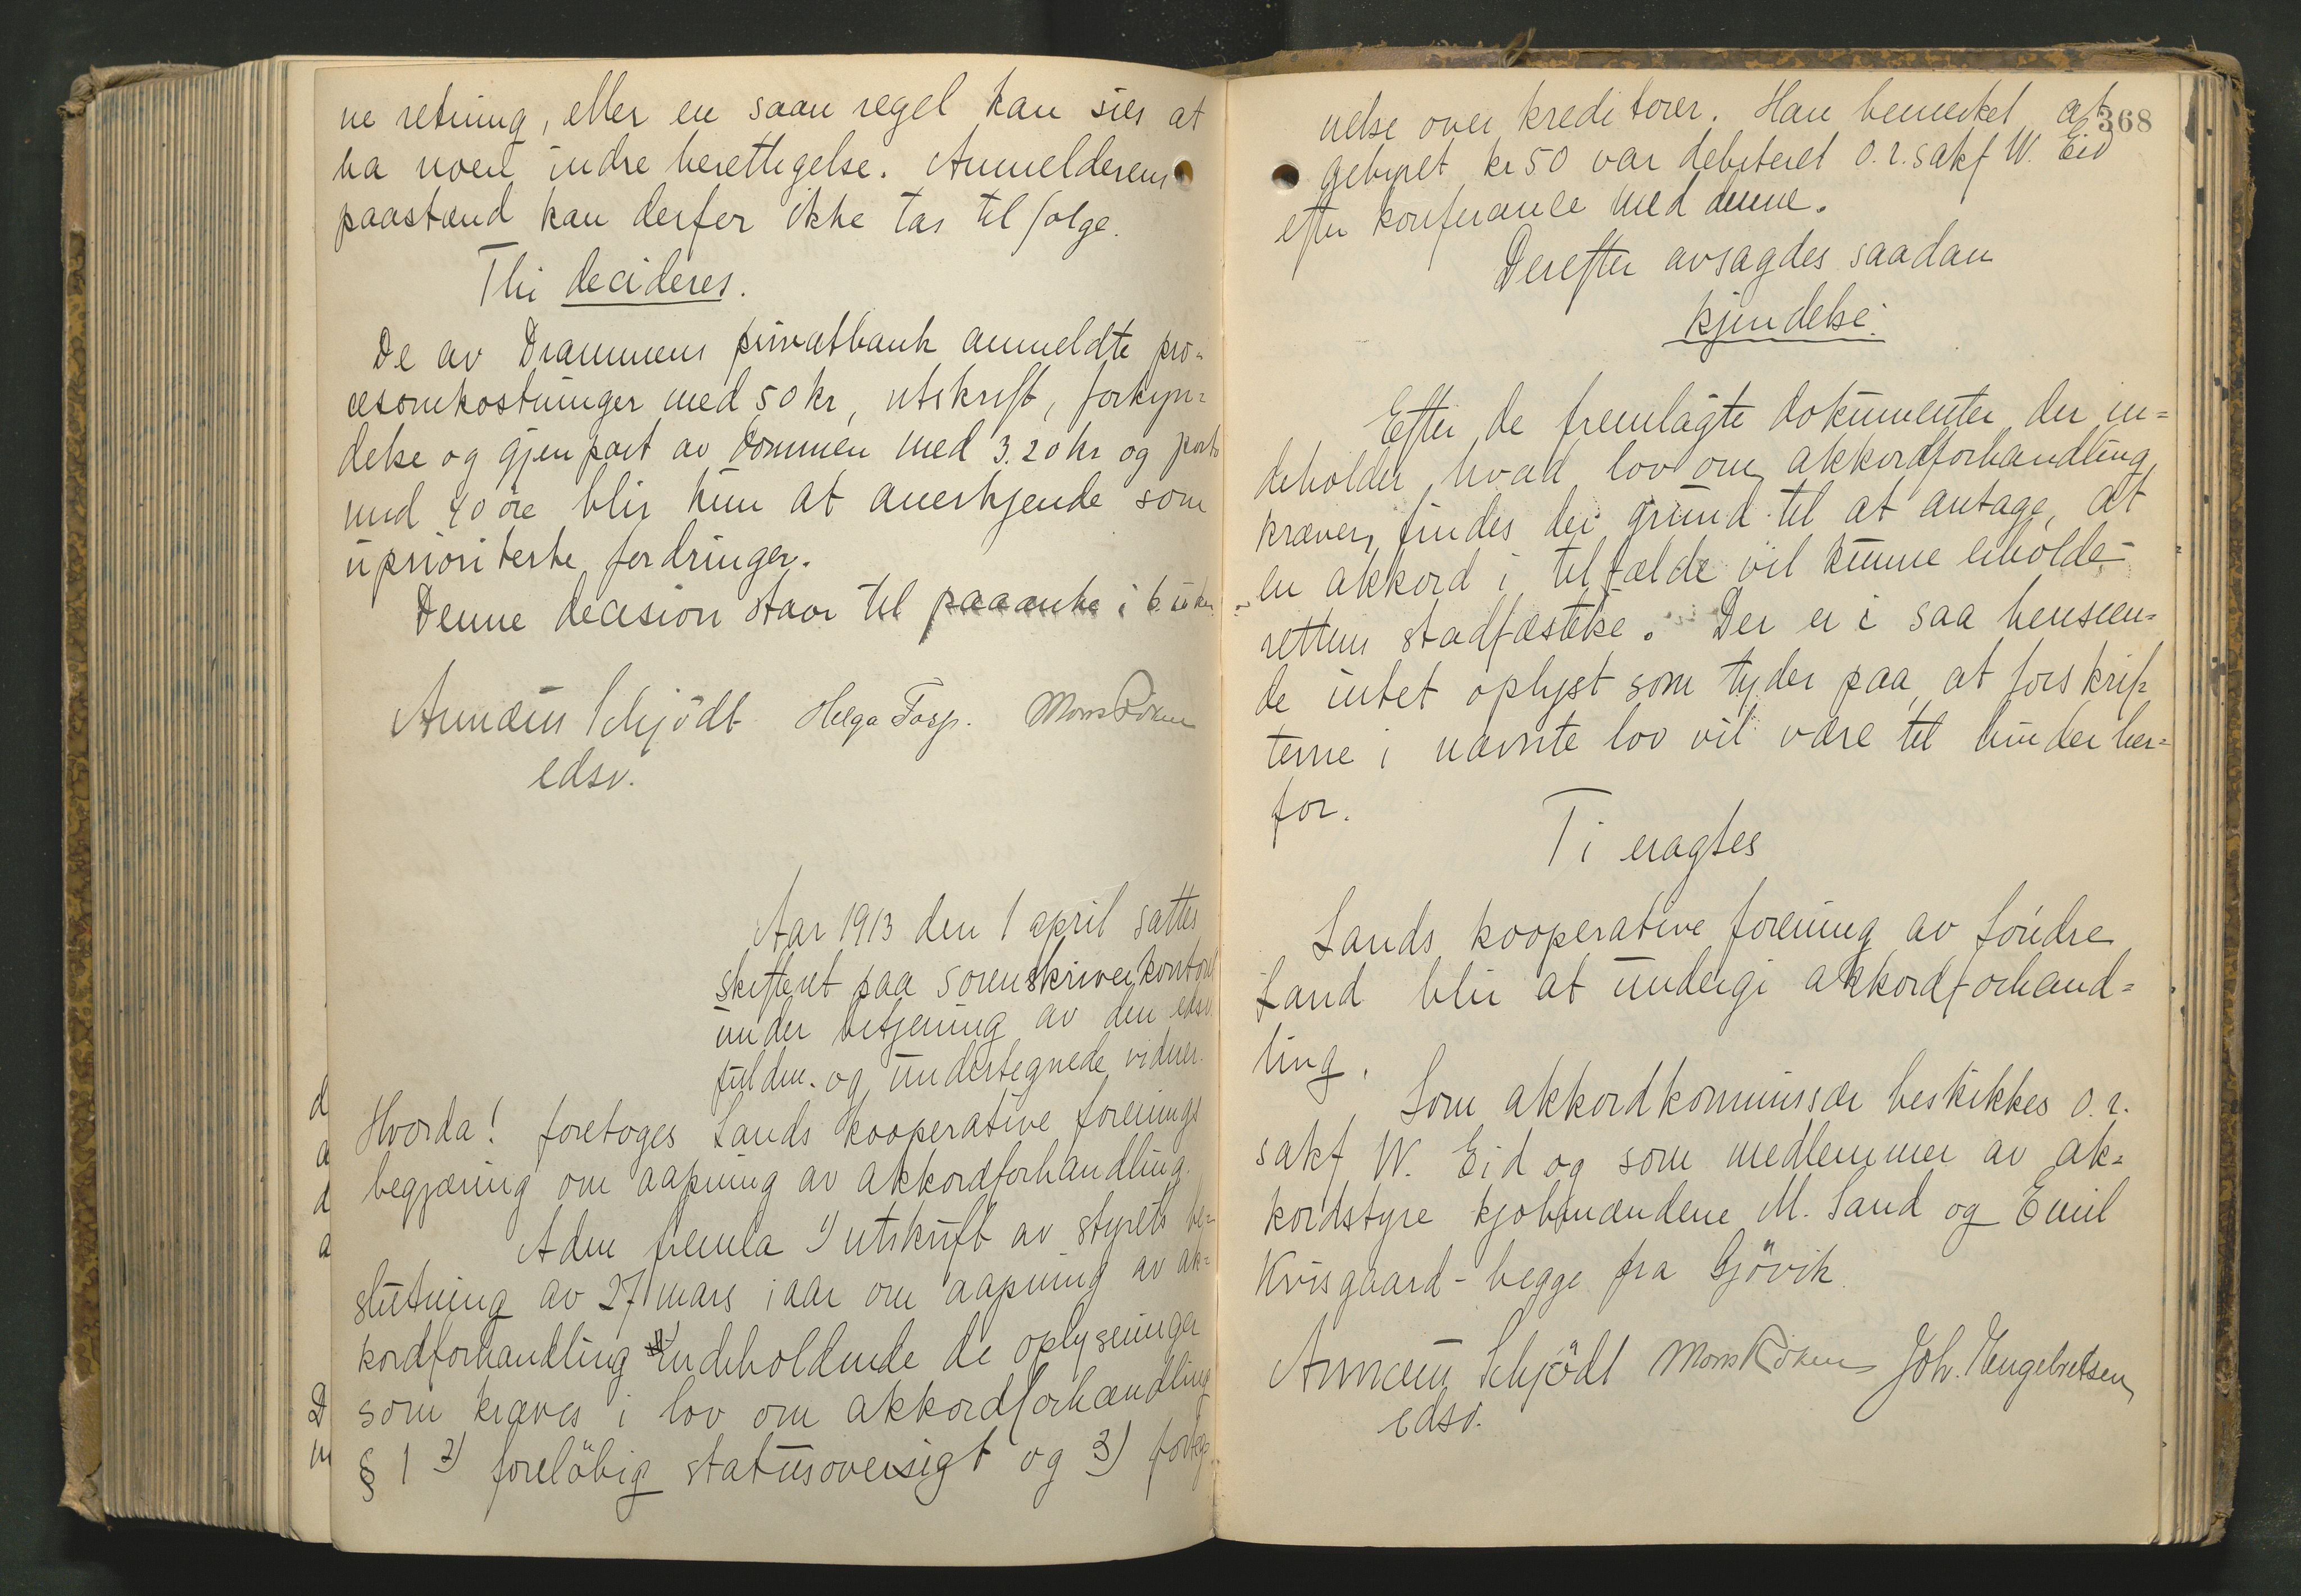 ne retning, eller en saan regel kan sies at
ha noen indre berettigelse. Anmelderens
paastand kan derfor ikke tas til følge.
Thi decideres.
De av Drammens privatbank anmeldte pro-
cesomkostninger med 50 kr, utskrift, forkyn=
delse og gjenpart av dommen med 3.20 kr og porto
med 40 øre blir kun at anerkjende som
uprioriterte fordringer.
Denne decision staar til paaanke i 6 uker
Annæus Schjödt Helga Mons Røken
edsv.
Aar 1913 den 1 april sattes
skifteret paa sorenskriverkontoret
under betjening av den edsv.
fuldm. og undertegnede vidner.
Hvorda! foretoges Lands kooperative forenings
begjæring om aapning av akkordforhandling.
Adm fremla 1) utskrift av styrets be=
slutning av 27 mars i aar om aapning av ak=
kordforhandling indeholdende de oplysninger
som kræves i lov om akkordforhandling
§ 1 2) foreløbig statusoversigt og 3) forteg=
d
a
d
a
D
m
368
nelse over kreditorer. Han bemerket at
gebyret kr 50 var debiteret o.r.sakf W. Eid
efter konferanse med denne.
Derefter avsagdes saadan
kjendelse:
Efter de fremlagte dokumenter der in=
deholder hvad lov om akkordforhandling
kræver, findes der grund til at antage, at
en akkord i tilfælde vil kunne erholde
rettens stadfæstelse. Der er i saa henseen=
de intet oplyst som tyder paa at forskrif=
terne i nævnte lov vil være til hinder her=
for.
Ti eragtes
Lands kooperative forening av Söndre
Land blir at undergi akkordforhand=
ling.
Som akkordkommissær beskikkes o.r.
sakf W. Eid og som medlemmer av ak=
kordstyre kjøbmændene M. Sand og Emil
Kvisgaard - begge fra Gjövik.
Annæus Schjödt Mons Røken Joh. Engebretsen
edsv.